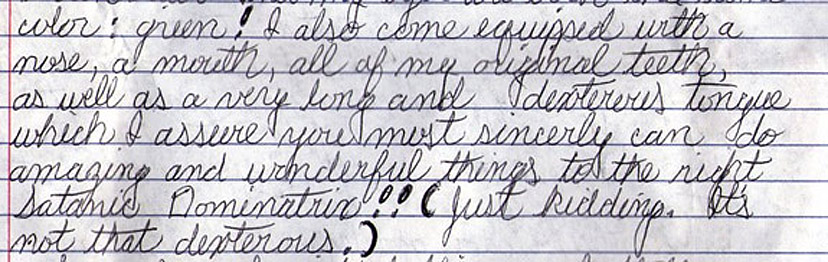 color: green! I also come equipped with a
nose, a mouth, all of my original teeth,
as well as a very long and dexterous tongue
which I assure you most sincerly can do
amazing and wonderful things to the right
Satanic Dominatrix!!! (Just kidding. It's
not that dexterous.)